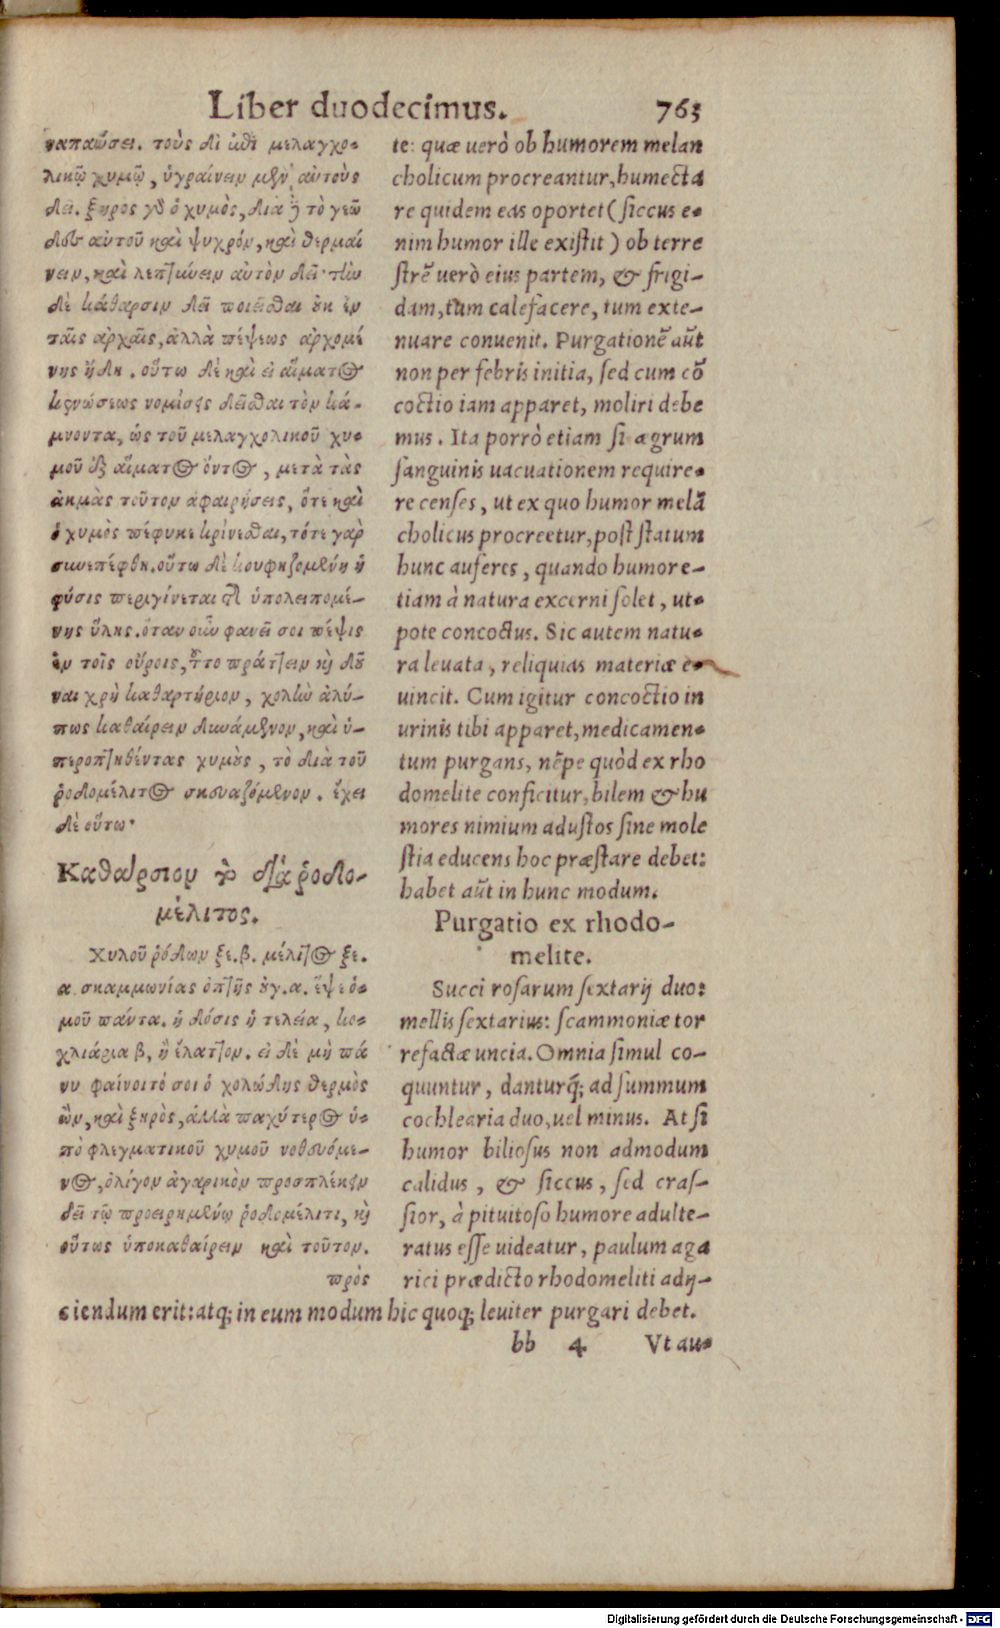 Liber duodecimus. 763
ναπαύσει. τοὺς δὲ ἐπὶ μελαγχο-
λικῷ χυμῷ, ὑγραίνειν μὲν αὐτοὺς
δεῖ. ξηρὸς γὰρ ὁ χυμὸς, διὰ δὲ τὸ γεῶ
δες αὐτοῦ καὶ ψυχρόν, καὶ θερμαί
νειν, καὶ λεπτύνειν αὐτὸν δεῖ· τὴν
δὲ κάθαρσιν δεῖ ποιεῖσθαι οὐκ ἐν
ταῖς ἀρχαῖς, ἀλλὰ πέψεως ἀρχομέ
νης ἤδη. οὕτω δὲ καὶ εἰ αἵματος
κενώσεως νομίσεις δεῖσθαι τὸν κά-
μνοντα, ὡς τοῦ μελαγχολικοῦ χυ-
μοῦ ἐξ αἵματος ὄντος, μετὰ τὰς
ἀκμὰς τοῦτον ἀφαιρήσεις, ὅτε καὶ
ὁ χυμὸς πέφυκε κρίνεσθαι, τότε γὰρ
συνεπέφθη. οὕτω δὲ κουφιζομένη ἡ
φύσις περιγίνεται τῆς ὑπολειπομέ-
νης ὕλης. ὅταν οὖν φανεῖ σοι πέψις
ἐν τοῖς οὔροις, τότε πράττειν καὶ δοῦ
ναι χρὴ καθαρτήριον, χολὴν ἀλύ-
πως καθαίρειν δυνάμενον, καὶ ὑ-
περοπτηθέντας χυμοὺς, τὸ διὰ τοῦ
ῥοδομέλιτος σκευαζόμενον. ἔχει
δὲ οὕτω·
Καθάρσιον τὸ διὰ ῥοδο-
μέλιτος.
Χυλοῦ ῥόδων ξε. β. μέλιτος ξε.
α. σκαμμωνίας ὀπτῆς ουγ. α. ἕψε ὁ-
μοῦ πάντα. ἡ δόσις ἡ τελεία, κο-
χλιάρια β, ἢ ἔλαττον. εἰ δὲ μὴ πά
νυ φαίνοιτό σοι ὁ χολώδης θερμὸς
ὢν, καὶ ξηρὸς, ἀλλὰ παχύτερος ὑ-
πὸ φλεγματικοῦ χυμοῦ νοθευόμε-
νος, ὀλίγον ἀγαρικὸν προσπλέκειν
δεῖ τῷ προειρημένῳ ῥοδομέλιτι, καὶ
οὕτως ὑποκαθαίρειν καὶ τοῦτον.
πρὸς
te: quæ uerò ob humorem melan
cholicum procreantur, humecta
re quidem eas oportet (siccus e-
nim humor ille existit) ob terre
strē uerò eius partem, & frigi-
dam, tum calefacere, tum exte-
nuare conuenit. Purgationē aūt
non per febris initia, sed cum cō
coctio iam apparet, moliri debe
mus. Ita porrò etiam si ægrum
sanguinis uacuationem require-
re censes, ut ex quo humor melā
cholicus procreetur, post statum
hunc auferes, quando humor e-
tiam à natura excerni solet, ut-
pote concoctus. Sic autem natu-
ra leuata, reliquias materiæ e-
uincit. Cum igitur concoctio in
urinis tibi apparet, medicamen-
tum purgans, nēpe quòd ex rho
domelite conficitur, bilem & hu
mores nimium adustos sine mole
stia educens hoc præstare debet:
habet aūt in hunc modum.
Purgatio ex rhodo-
melite.
Succi rosarum sextarij duo:
mellis sextarius: scammoniæ tor
refactæ uncia. Omnia simul co-
quuntur, danturq́; ad summum
cochlearia duo, uel minus. At si
humor biliosus non admodum
calidus, & siccus, sed cras-
sior, à pituitoso humore adulte-
ratus esse uideatur, paulum aga
rici prædicto rhodomeliti adij-
ciendum erit: atq; in eum modum hic quoq; leuiter purgari debet.
bb 4 Vt au-
Digitalisierung gefördert durch die Deutsche Forschungsgemeinschaft - DFG